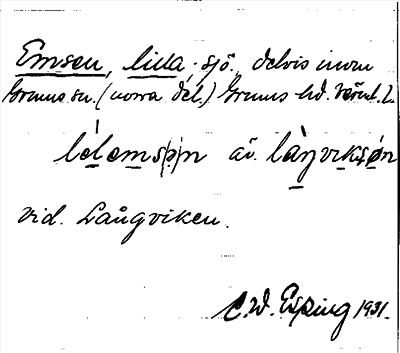 Emsen, lilla. sjö, delvis inom
Grums sn. (norra del.) Grums hd. Värml. L.
lèlemsøn äv. làŋviksøn
vid Långviken.
C.W. Esping 1931.